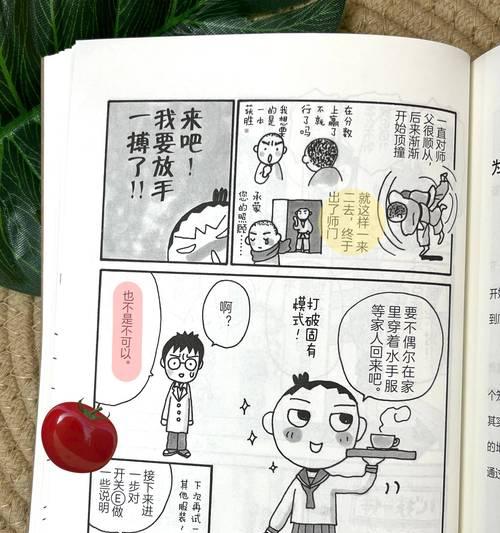 一直对师
父很顺从，
后来渐渐
开始顶撞
在分数
上赢了
不就
行了吗
我想要
的是
一本
获胜
就这样一来
二去，终于
出了师门
承蒙
您的照顾……
来吧！
我要放手
一搏了！！
要不偶尔在家
里穿着水手服
等家人回来吧。
打破固有
模式！
啊？
也不是不可以。
下次再试一
其他服装！
接下来进
一步对
开关Ⓔ做
一些说明
为
开始
到
个
其实
的
通过